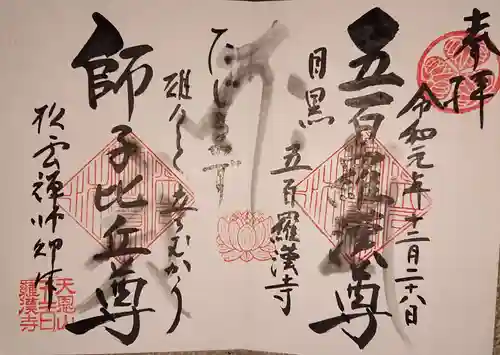 奉拝
令和元年十二月二十八日
五百羅漢尊
目黒
五百羅漢寺
雄々しく立ちむかう
師子比丘尊
松雲禅師御作
天恩山
五百
羅漢寺